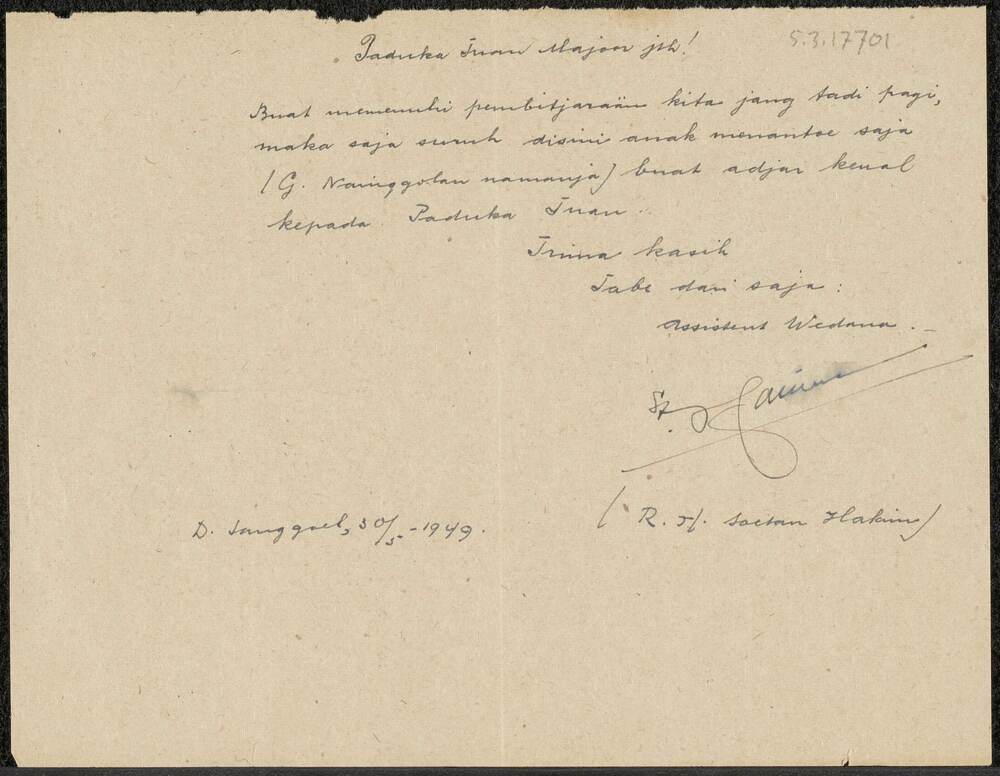 5.3.17701
Paduka Tuan Majoor jth!
Buat memenuhi pembitjaraän kita jang tadi pagi,
maka saja suruh disini anak menantoe saja
(G. Nainggolan namanja) buat adjar kenal
kepada Paduka Tuan.
Trima kasih
Tabe dari saja:
Assistent Wedana.-
St.
(R. H. Soetan Hakim)
D. Sanggoel, 30/5-1949.